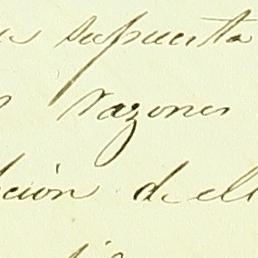 supuesta
razones
ción de ell